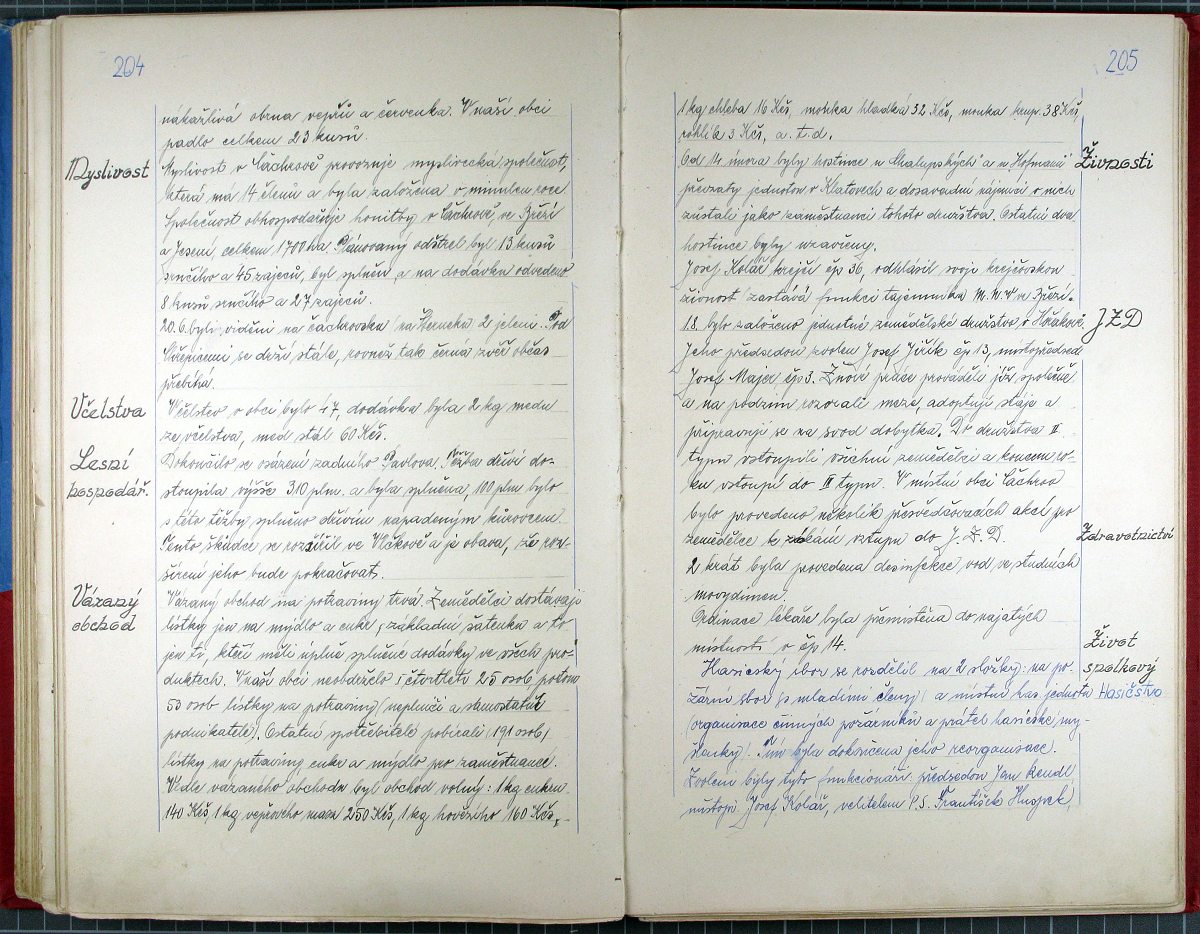 204
nákažlivá obrna vepřů a červenka. V naší obci
padlo celkem 23 kusů.
Myslivost
Myslivost v Čachrově provozuje myslivecká společnost,
která má 14 členů a byla založena v minulém roce
Společnost obhospodařuje honitby v Čachrově ve Březí
a Jesení, celkem 1700 ha. Plánovaný odstřel byl 13 kusů
srnčího a 45 zajeců, byl splněn, a na dodávku odvedeno
8 kusů srnčího a 27 zajeců.
20. 6. byli viděni na čachrovsku (na 2 jeleni. Pod
se drží stále, rovněž tak černá zvěř občas
přebíhá.
Včelstva
Včelstev v obci bylo 47 dodávka byla 2 kg medu
ze včelstva, med stál 60 Kčs.
Lesní
hospodář.
Dokončilo se osázení zadního Pavlova. Těžba dříví do-
stoupila výše 310 plm. a byla splněna, 100 plm bylo
s této těžby splněno dřívím napadeným kůrovcem.
Tento škůdce se rozšířil ve Vlčkově a je obava, že roz-
šíření jeho bude pokračovat.
Vázaný
obchod
Vázaný obchod na potraviny trvá. Zemědělci dostávají
lístky jen na mýdlo a cukr, základní šatenku a to
jen ti, kteří měli úplně splněné dodávky ve všech pro-
duktech. V naší obci neobdrželo I čtvrtletí 25 osob, potom
53 osob lístky na potraviny (neplniči a samostatně
podnikatelé). Ostatní spotřebitelé pobírali (191 osob)
lístky na potraviny cukr a mýdlo pro zaměstnance.
Vedle vázaného obchodu byl obchod volný: 1 kg cukru
140 Kčs, 1 kg vepřového masa 250 Kčs, 1 kg hovězího 160 Kčs,-
205
1 kg chleba 16 Kčs, mouka hladká 32 Kčs, mouka krup. 38 Kčs,
rohlík 3 Kčs, a. t. d.
Živnosti
Od 14. února byly hostince u Chalupských a u Hofmanů
převzaty jednotou v Klatovech a dosavadní nájemci v nich
zůstali jako zaměstnanci tohoto družstva. Ostatní dva
hostince byly uzavřeny.
Josef Kolář krejčí čp 36, odhlásil svoji krejčovskou
živnost (zastává funkci tajemníka M. N. V. ve Březí.
JZD
1.8. bylo založeno jednotné zemědělské družstvo v
Jeho předsedou zvolen Josef Jiřík čp 13, místopředsedo
Josef Majer čp 3. Žňové práce prováděli již společně
a na podzim rozorali meze, adoptují stáje a
připravují se na svod dobytka. Do družstva II
typu vstoupili všichni zemědělci a koncem ro-
ku vstoupí do III typu. V místní obci Čachrov
bylo provedeno několik přesvědčovacích akcí pro
zemědělce k získání vstupu do J. Z. D.
Zdravotnictví
2 krát byla provedena desinfekce vod ve studních
Ordinace lékaře byla přemístěna do najatých
místností v čp 14.
Život
spolkový
Hasičstvo
Hasičský sbor se rozdělil na 2 složky: na po-
žární sbor (s mladšími členy) a místní has. jednotu
(organisace činných požárníků a přátel hasičské my-
šlenky). Tím byla dokončena jeho reorganisace.
Zvoleni byly tyto funkcionáři: předsedou Jan Rendl,
místopř. Josef Kolář, velitelem P. S. František Huspek,